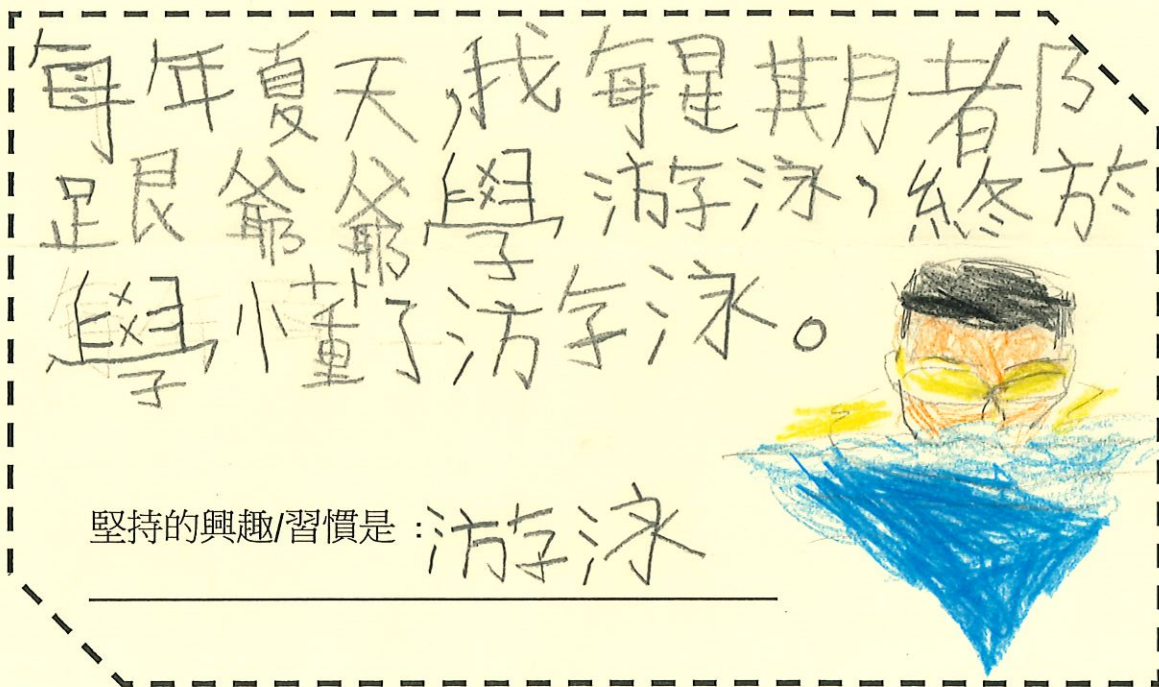 每年夏天,我每星期都
跟爺爺學游泳,終於
學懂了游泳。
堅持的興趣/習慣是:游泳